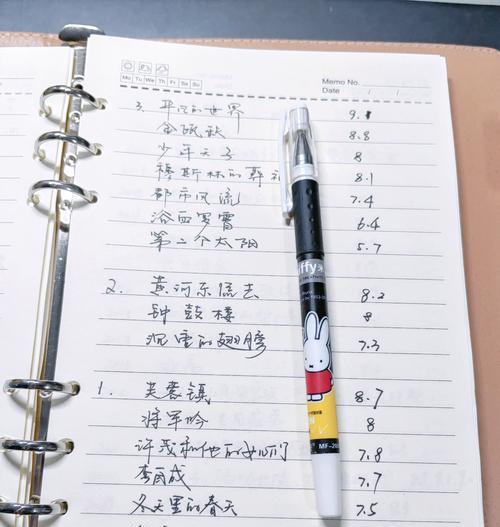 Mo Tu We Th Fr Sa Su
Memo No.
Date / /
3. 平凡的世界 9.1
金瓯缺 8.8
少年天子 8
穆斯林的葬礼 8.1
都市风流 7.4
浴血罗霄 6.4
第二个太阳 5.7
2. 黄河东流去 8.2
钟鼓楼 8
沉重的翅膀 7.3
1. 芙蓉镇 8.7
将军吟 8
许茂和他的女儿们 7.8
李自成 7.7
冬天里的春天 7.5
ffy